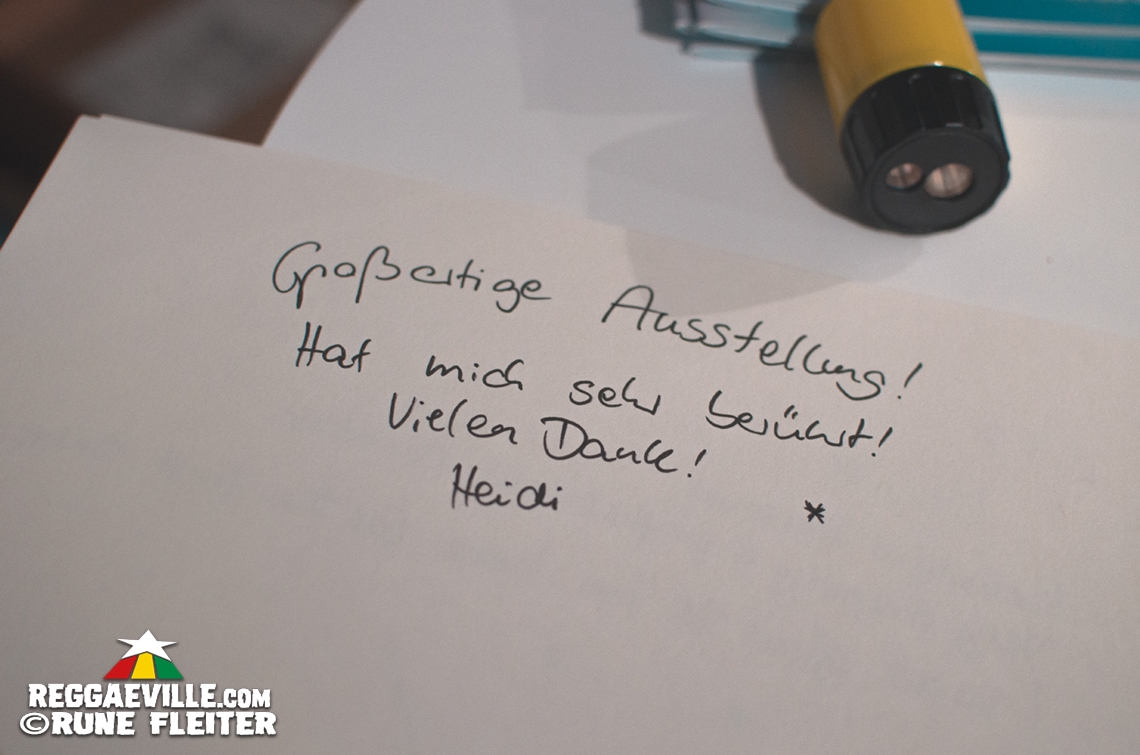 Großartige Ausstellung!
Hat mich sehr berührt!
Vielen Dank!
Heidi *
REGGAEVILLE.COM
©RUNE FLEITER